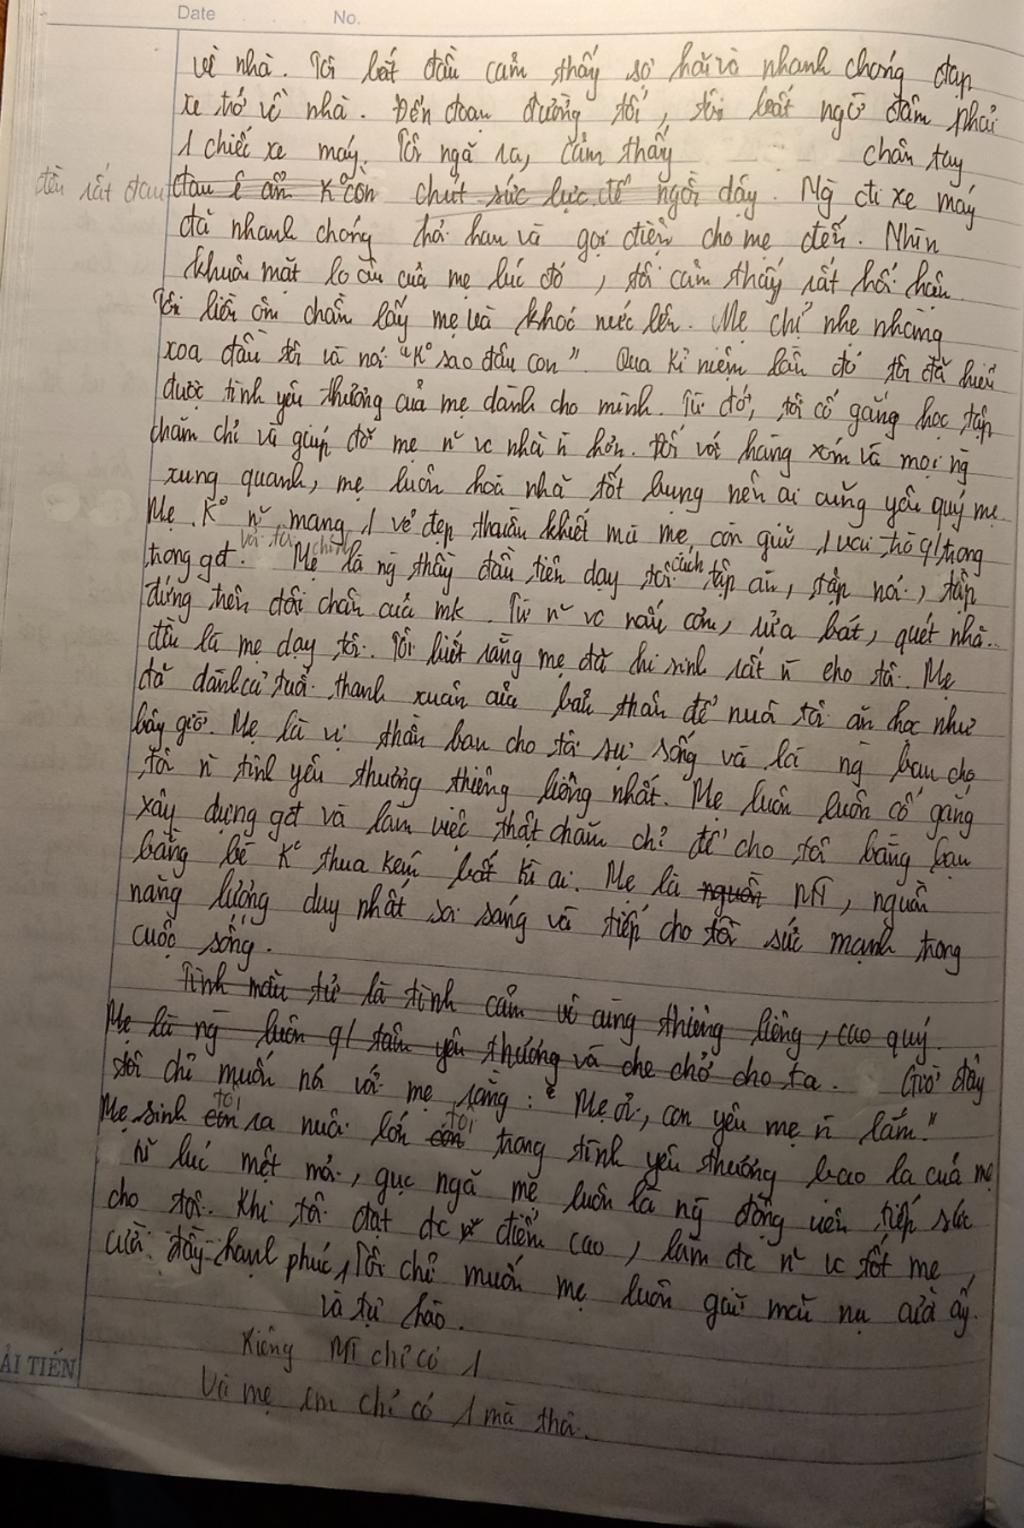 Date No.
về nhà. Tôi bắt đầu cảm thấy sợ hãi và nhanh chóng đạp
xe trở về nhà. Đến đoạn đường tối, tôi bất ngờ đâm phải
1 chiếc xe máy. Tôi ngã ra, cảm thấy chân tay
đều rất đau đau ê ẩm K° còn chút sức lực để ngồi dậy. Ng̃ đi xe máy
đã nhanh chóng hỏi han và gọi điện cho mẹ đến. Nhìn
khuôn mặt lo âu của mẹ lúc đó, tôi cảm thấy rất hối hận.
Tôi liền ôm chầm lấy mẹ và khóc nức lên. Mẹ chỉ nhẹ nhàng
xoa đầu tôi và nói "K° sao đâu con". Qua kỉ niệm lần đó tôi đã hiểu
được tình yêu thương của mẹ dành cho mình. Từ đó, tôi cố gắng học tập
chăm chỉ và giúp đỡ mẹ n~ vc nhà ñ hơn. Đối với hàng xóm và mọi ng̃
xung quanh, mẹ luôn hoà nhã tốt bụng nên ai cũng yêu quý mẹ.
Mẹ K° n~ mang 1 vẻ đẹp thuần khiết mà mẹ còn giữ 1 vai trò q/ trong
trong gđ. Với tôi Mẹ chính là ng̃ thầy đầu tiên dạy tôi cách tập ăn, tập nói, tập
đứng trên đôi chân của mk. Từ n~ vc nấu cơm, rửa bát, quét nhà...
đều là mẹ dạy tôi. Tôi biết rằng mẹ đã hi sinh rất ñ cho tôi. Mẹ
đã dành cả tuổi thanh xuân của bản thân để nuôi tôi ăn học như
bây giờ. Mẹ là vị thần ban cho tôi sự sống và là ng̃ ban cho
tôi ñ tình yêu thương thiêng liêng nhất. Mẹ luôn luôn cố gắng
xây dựng gđ và làm việc thật chăm chỉ để cho tôi bằng bạn
bằng bè K° thua kém bất kì ai. Mẹ là nguồn MT, nguồn
năng lượng duy nhất soi sáng và tiếp cho tôi sức mạnh trong
cuộc sống.
Tình mẫu tử là tình cảm vô cùng thiêng liêng, cao quý.
Mẹ là ng̃ luôn q/ tâm yêu thương và che chở cho ta. Giờ đây
tôi chỉ muốn nói với mẹ rằng: "Mẹ ơi, con yêu mẹ ñ lắm."
Mẹ sinh con tôi ra nuôi lớn con tôi trong tình yêu thương bao la của mẹ
N~ lúc mệt mỏi, gục ngã mẹ luôn là ng̃ động viên tiếp sức
cho tôi. Khi tôi đạt đc n~ điểm cao, làm đc n~ vc tốt mẹ
cười đầy hạnh phúc, Tôi chỉ muốn mẹ luôn giữ mãi nụ cười ấy.
và tự hào.
Riêng MT chỉ có 1
Và mẹ em chỉ có 1 mà thôi.
ẢI TIẾN